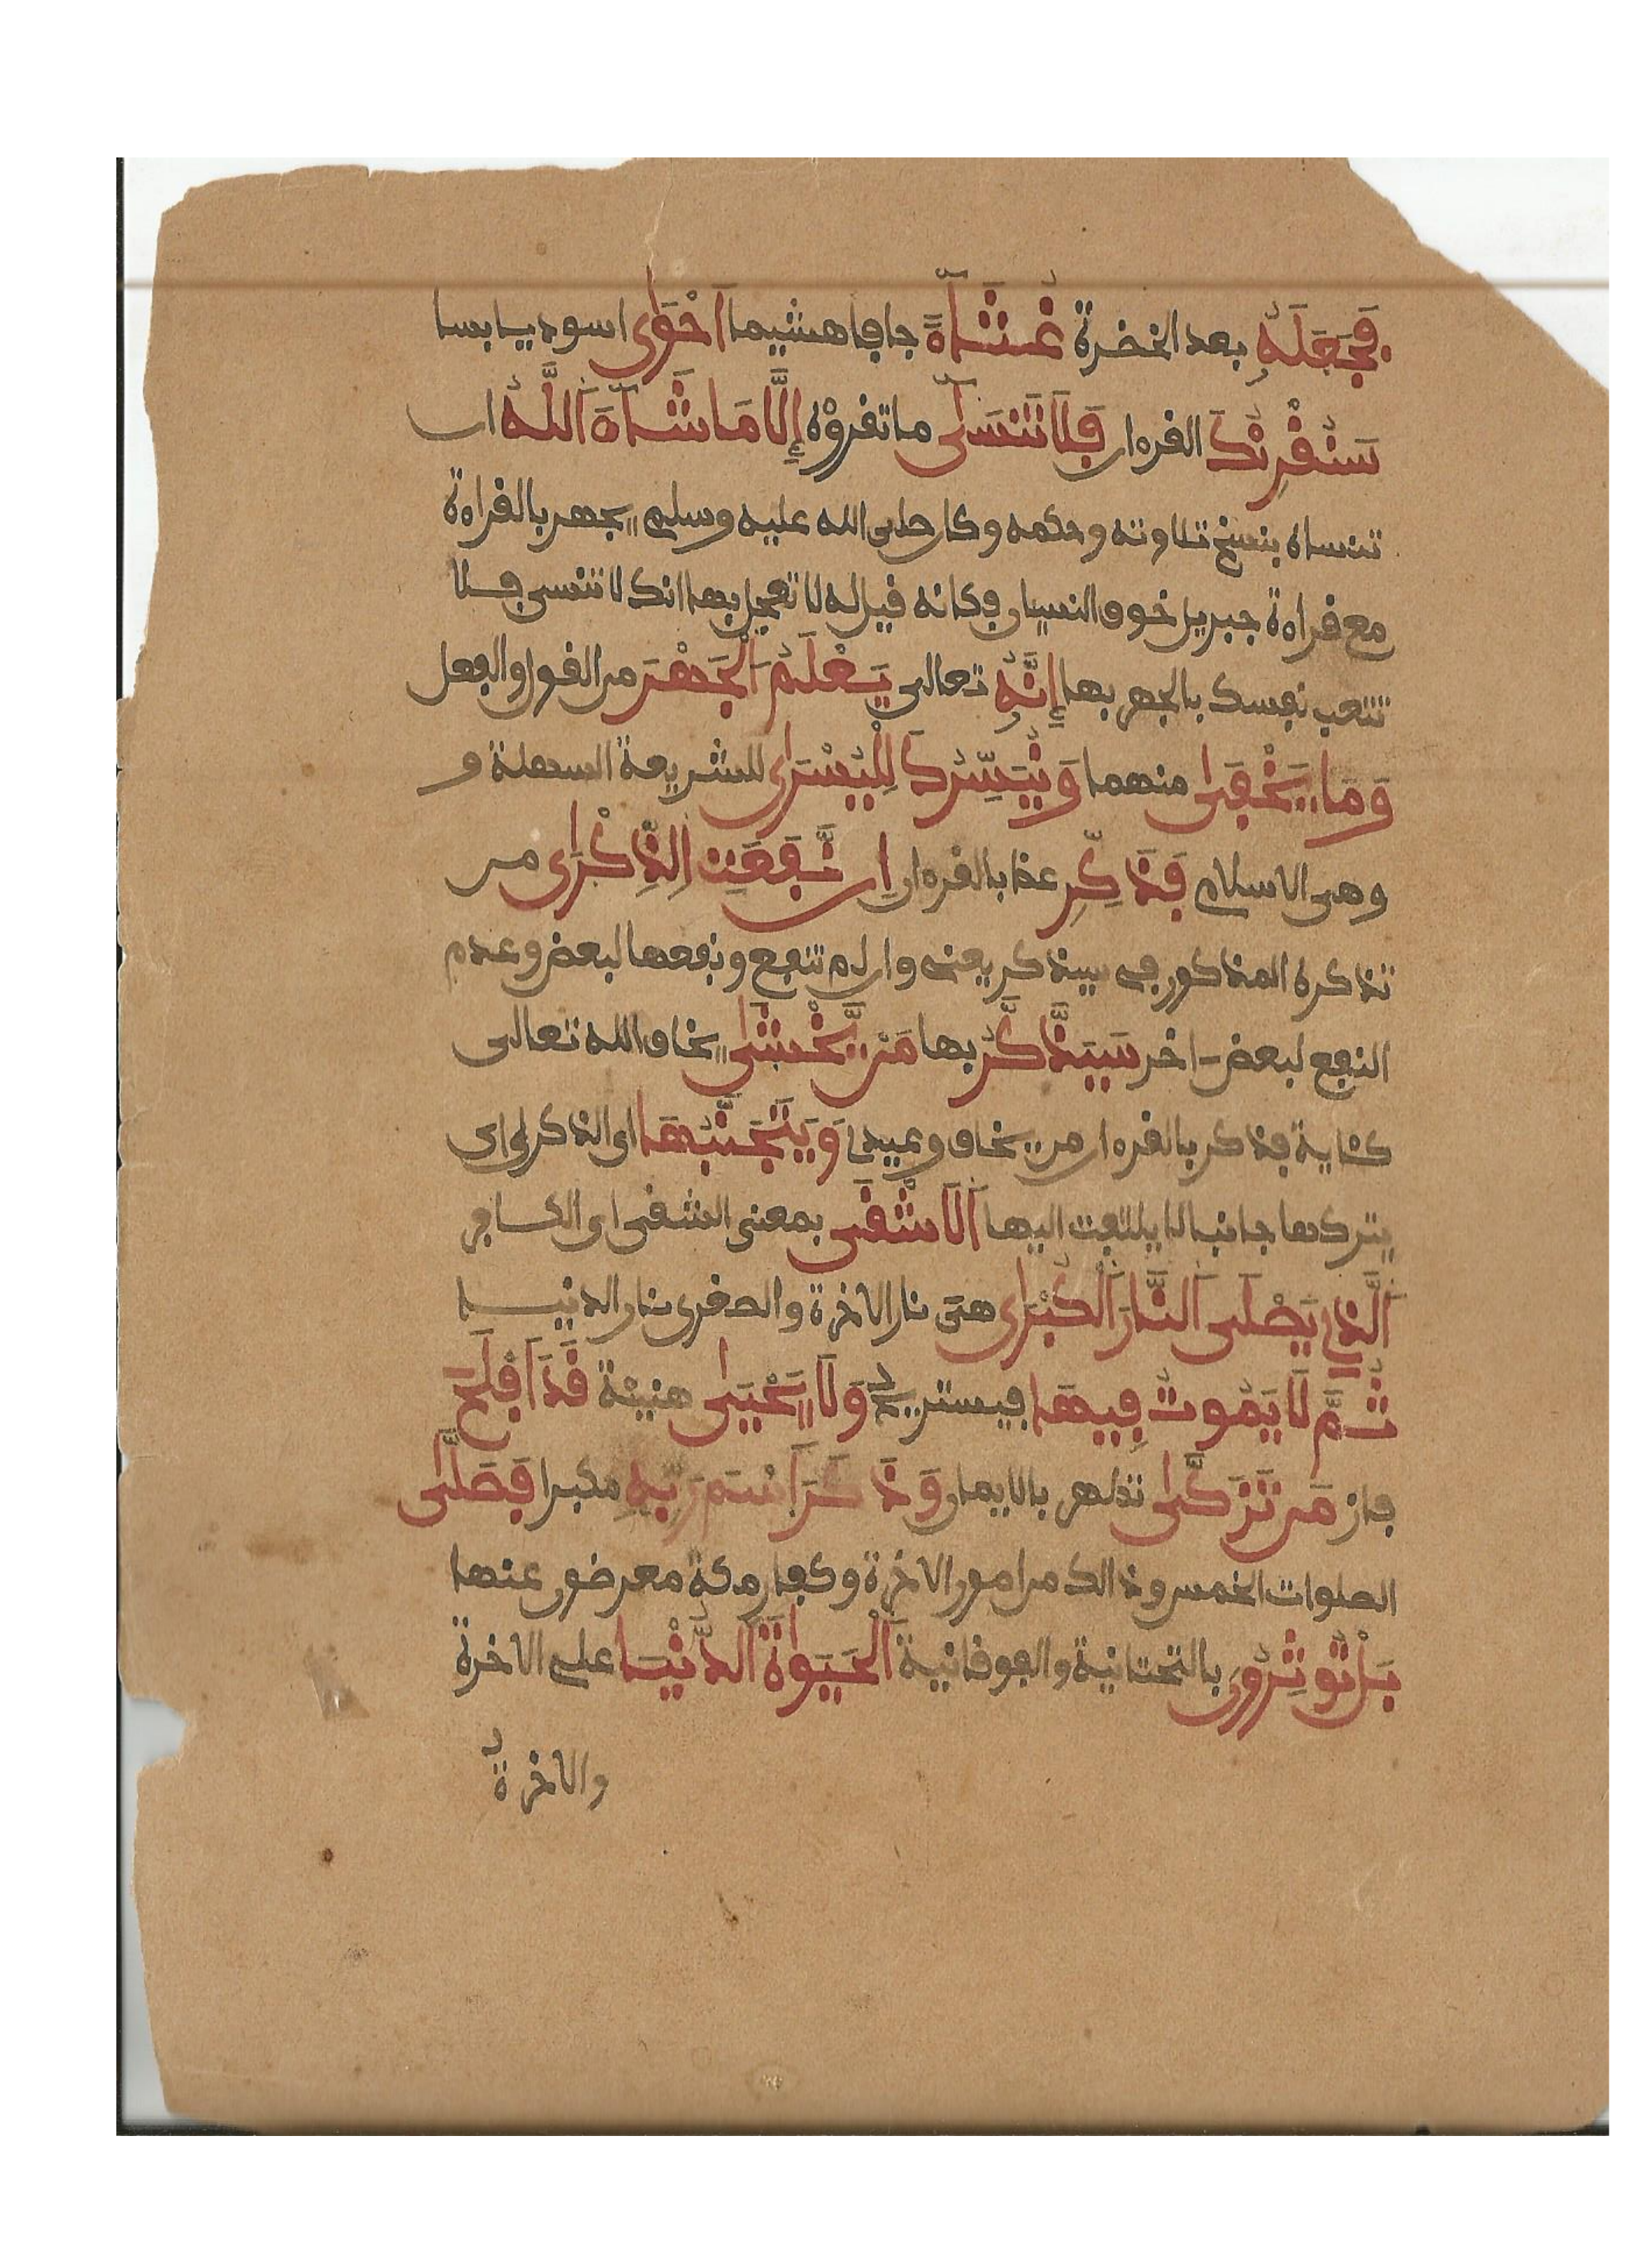 فَجَعَلَهُۥ بعد الخضرة غُثَآءً جافا هشيما اَحْوٰى اسود يابسا
سَنُقْرِئُكَ القرءان فَلَا تَنسٰىٓ ما تقرؤه إِلَّا مَا شَآءَ اَللَّهُ ان
تنساه بنسخ تلاوته وحكمه وكان صلى الله عليه وسلم يجهر بالقراءة
مع قراءة جبريل خوف النسيان فكانه قيل له لا تعجل بها انك لا تنسى فلا
تتعب نفسك بالجهر بها إِنَّهُۥ تعالى يَعْلَمُ اَلْجَهْرَ من القول والفعل
وَمَا يَخْفٰى منهما وَنُيَسِّرُكَ لِلْيُسْرٰى للشريعة السهلة و
وهي الاسلام فَذَكِّرِ عظ بالقرءان إِن نَّفَعَتِ اِلذِّكْرٰى من
تذكره المذكور في سيذكر يعني وان لم تنفع ونفعها لبعض وعدم
النفع لبعض اخر سَيَذَّكَّرُ بها مَنْ يَّخْشٰى يخاف الله تعالى
كناية فذكر بالقرءان من يخاف وعيد وَيَتَجَنَّبُهَا اى الذكرى اى
يتركها جانبا لا يلتفت اليها اَلَاشْقَى بمعنى الشقى اى الكافر
اَلَّذِے يَصْلَى اَلنَّارَ اَلْكُبْرٰى هى نار الاخرة والصغرى نار الدنيا
ثُمَّ لَا يَمُوتُ فِيهَا فيستريح وَلَا يَحْيٰى هنيئة قَدَ اَفْلَحَ
فاز مَن تَزَكّٰى تطهر بالايمان وَذَكَرَ اَسْمَ رَبِّهِۦ مكبرا فَصَلّٰى
الصلوات الخمس وذالك من امور الاخرة وكفار مكة معرضون عنها
بَلْ تُوثِرُونَ بالتحتانية والفوقانية اَلْحَيَوٰةَ اَلدُّنْيَا على الاخرة
والاخرةُ